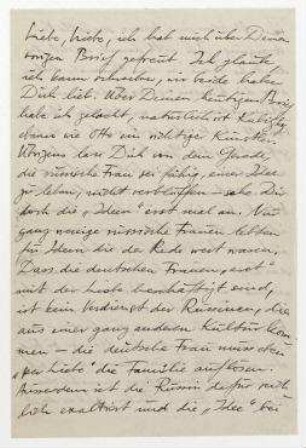 Liebe, Liebe, ich hab mich über Deinen
vorigen Brief gefreut. Ich glaube
ich kann schreiben, wir beide haben
Dich lieb. Über Deinen heutigen Brief
habe ich gelacht, natürlich ist
ebenso wie Otto ein richtiger Künstler.
Übrigens lass Dich von dem Gerede,
die russische Frau sei fähig, einer Idee
zu leben, nicht verblüffen – sehe Dir
doch die „Ideen" erst mal an. Nur
ganz wenige russische Frauen lebten
für Ideen die der Rede wert waren.
Dass die deutschen Frauen „erst"
mit der Liebe beschäftigt sind,
ist kein Verdienst der Russinen, die
aus einer ganz anderen Kultur kom-
men – die deutsche Frau muss eben
„per Liebe" die Familie auflösen.
Ausserdem ist die Russin
exaltiert und die „Idee" bei